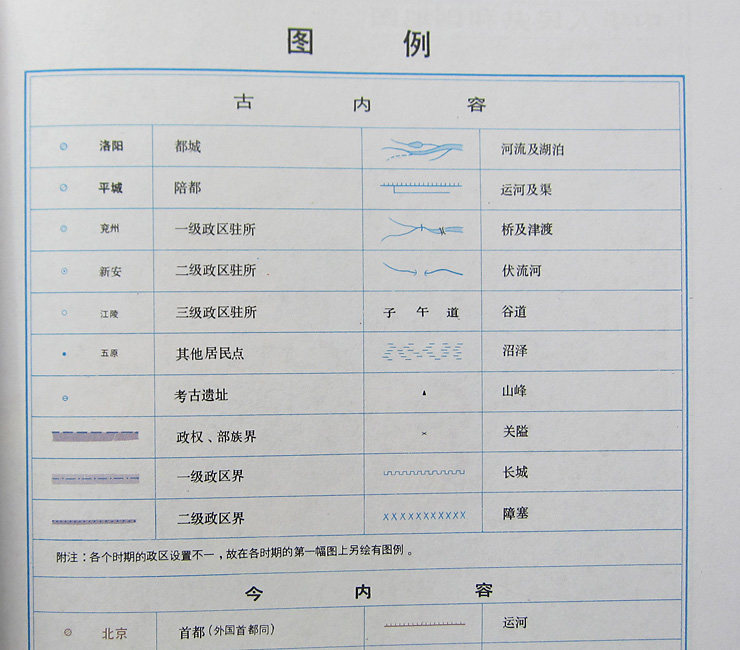 图 例
古 内 容
洛阳 都城 河流及湖泊
平城 陪都 运河及渠
兖州 一级政区驻所 桥及津渡
新安 二级政区驻所 伏流河
江陵 三级政区驻所 子 午 道 谷道
五原 其他居民点 沼泽
考古遗址 山峰
政权、部族界 关隘
一级政区界 长城
二级政区界 障塞
附注：各个时期的政区设置不一，故在各时期的第一幅图上另绘有图例。
今 内 容
北京 首都(外国首都同) 运河